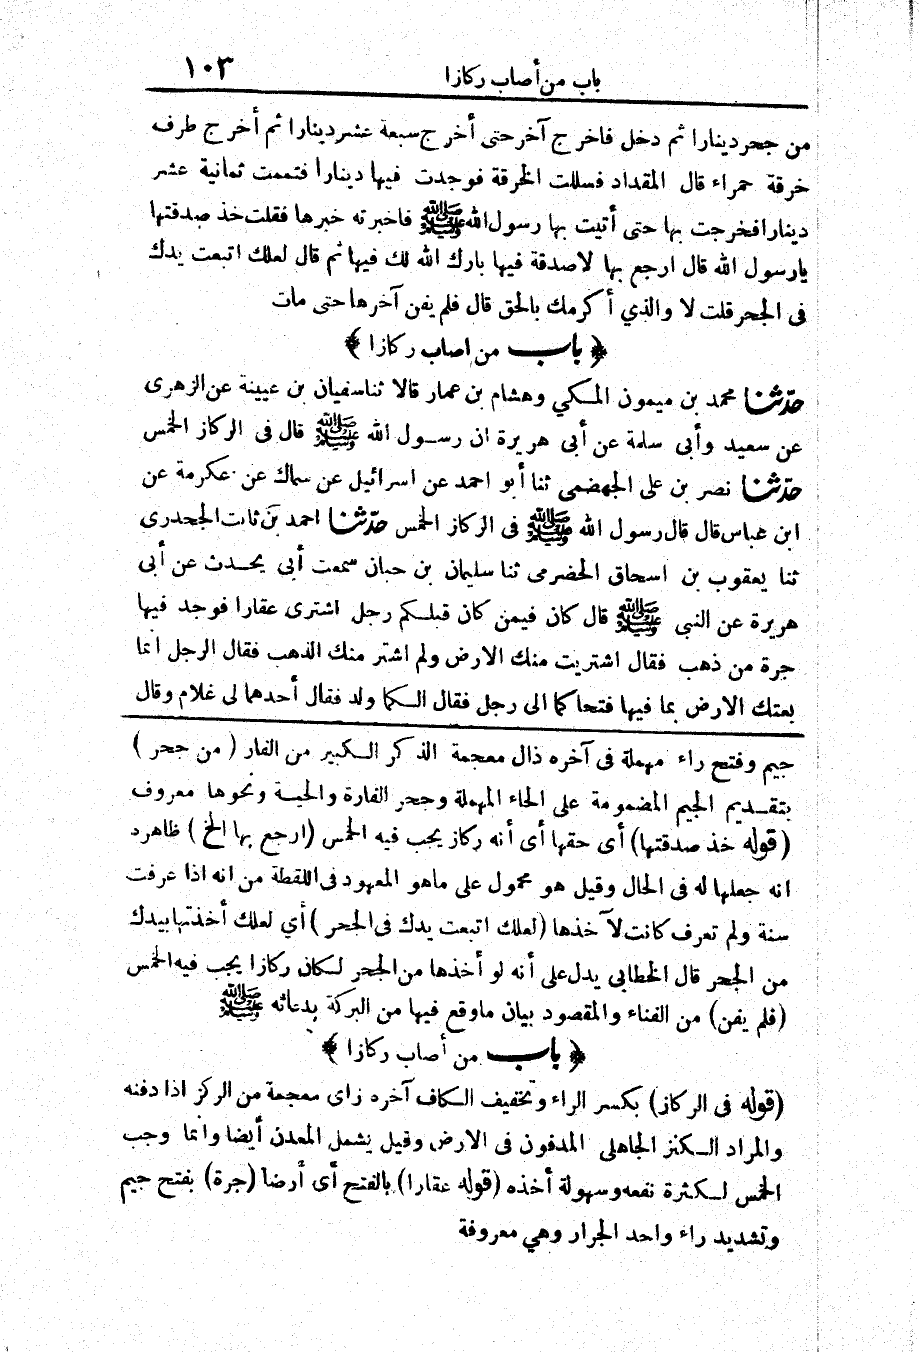 باب من أصاب ركازا
١٠٣
من جحر دينارا ثم دخل فاخرج آخر حتى أخرج سبعة عشر دينارا ثم أخرج طرف
خرقة حمراء قال المقداد فسللت الخرقة فوجدت فيها دينارا فتممت ثمانية عشر
دينارا فخرجت بها حتى أتيت بها رسول الله ﷺ فاخبرته خبرها فقلت خذ صدقتها
يارسول الله قال ارجع بها لاصدقة فيها بارك الله لك فيها ثم قال لعلك اتبعت يدك
فى الجحر قلت لا والذي أكرمك بالحق قال فلم يفن آخرها حتى مات
﴿ باب من اصاب ركازا ﴾
حدّثنا محمد بن ميمون المكي وهشام بن عمار قالا ثنا سفيان بن عيينة عن الزهرى
عن سعيد وأبى سلمة عن أبى هريرة ان رسول الله ﷺ قال فى الركاز الخمس
حدّثنا نصر بن على الجهضمى ثنا أبو احمد عن اسرائيل عن سماك عن عكرمة عن
ابن عباس قال قال رسول الله ﷺ فى الركاز الخمس حدّثنا احمد بن ثابت الجحدرى
ثنا يعقوب بن اسحاق الحضرمى ثنا سليمان بن حبان سمعت أبى يحدث عن أبى
هريرة عن النبى ﷺ قال كان فيمن كان قبلكم رجل اشترى عقارا فوجد فيها
جرة من ذهب فقال اشتريت منك الارض ولم اشتر منك الذهب فقال الرجل انما
بعتك الارض بما فيها فتحا كما الى رجل فقال الكما ولد فقال أحدهما لى غلام وقال
جيم وفتح راء مهملة فى آخره ذال معجمة الذكر الكبير من الفار ( من جحر )
بتقديم الجيم المضمومة على الحاء المهملة وجحر الفارة والحية ونحوها معروف
(قوله خذ صدقتها) أى حقها أى أنه ركاز يجب فيه الخمس (ارجع بها الخ) ظاهره
انه جعلها له فى الحال وقيل هو محمول على ماهو المعهود فى اللقطة من انه اذا عرفت
سنة ولم تعرف كانت لآخذها (لعلك اتبعت يدك فى الجحر) أي لعلك أخذتها بيدك
من الجحر قال الخطابى يدل على أنه لو أخذها من الجحر لكان ركازا يجب فيه الخمس
(فلم يفن) من الفناء والمقصود بيان ماوقع فيها من البركة بدعائه ﷺ
﴿ باب من أصاب ركازا ﴾
(قوله فى الركاز) بكسر الراء وتخفيف الكاف آخره زاى معجمة من الركز اذا دفنه
والمراد الكنز الجاهلى المدفون فى الارض وقيل يشمل المعدن أيضا وانما وجب
الخمس لكثرة نفعه وسهولة أخذه (قوله عقارا) بالفتح أى أرضا (جرة) بفتح جيم
وتشديد راء واحد الجرار وهي معروفة